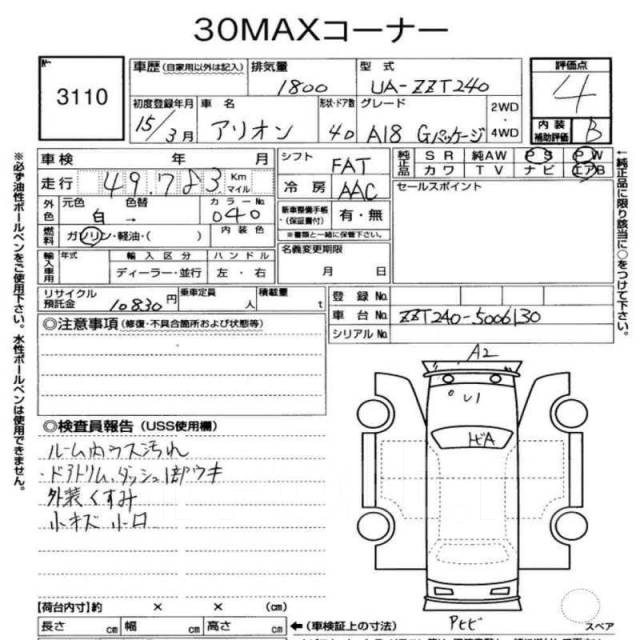 30MAXコーナー
No 3110
車歴 (自家用以外は記入) 排気量 1800 型式 UA-ZZT240 評価点 4
初度登録年月 15/3月 車名 アリオン 形状・ドア数 4D グレード A18 Gパッケージ 2WD・4WD 内装補助評価 B
車検 年 月 シフト FAT 純正品 SR 純AW PS PW
走行 49,783 Km マイル 冷房 AAC カワ TV ナビ エアB
外色 元色 白 色替 → カラーNo. 040 新車整備手帳(保証書付) 有・無 セールスポイント
※書類と一緒に保管下さい。
燃料 ガソリン・軽油・( ) 内装色 名義変更期限
輸入車用 年式 輸入区分 ハンドル 月 日
ディーラー・並行 左・右
リサイクル預託金 10830円 乗車定員 人 積載量 t 登録No.
車台No. ZZT240-5006130
シリアルNo.
◎注意事項 (修復・不具合箇所および状態等)
◎検査員報告 (USS使用欄)
ルーム内ウス汚れ
・ドアトリム、ダッシュ1部ウキ
外装くすみ
小キズ 小凹
A2
ヒビA
Pヒビ
スペア
【荷台内寸】約 × × (cm)
長さ cm 幅 cm 高さ cm ←(車検証上の寸法)
※必ず油性ボールペンをご使用下さい。水性ボールペンは使用できません。
←純正品に限り該当に○をつけて下さい。